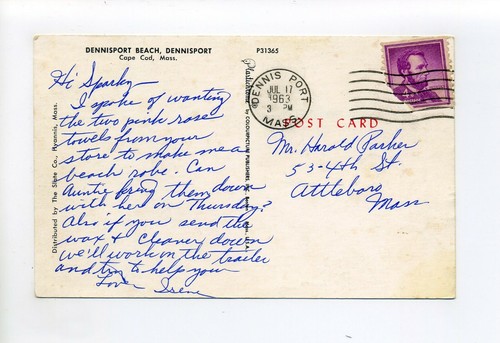 DENNISPORT BEACH, DENNISPORT
Cape Cod, Mass.
P31365
Hi Sparky
I spoke of wanting
the two pink rose
towels from your
store to make me a
beach robe. Can
Auntie bring them down
with her on Thursday?
Also if you send the
wax & cleaner down
we'll work on the trailer
and try to help you
Love Irene
Distributed by The Silbte Co., Hyannis, Mass.
Plastichrome
DENNIS PORT
JUL 17
1963
3 PM
MASS.
POST CARD
Mr. Harold Parker
53-4th St.
Attleboro
Mass